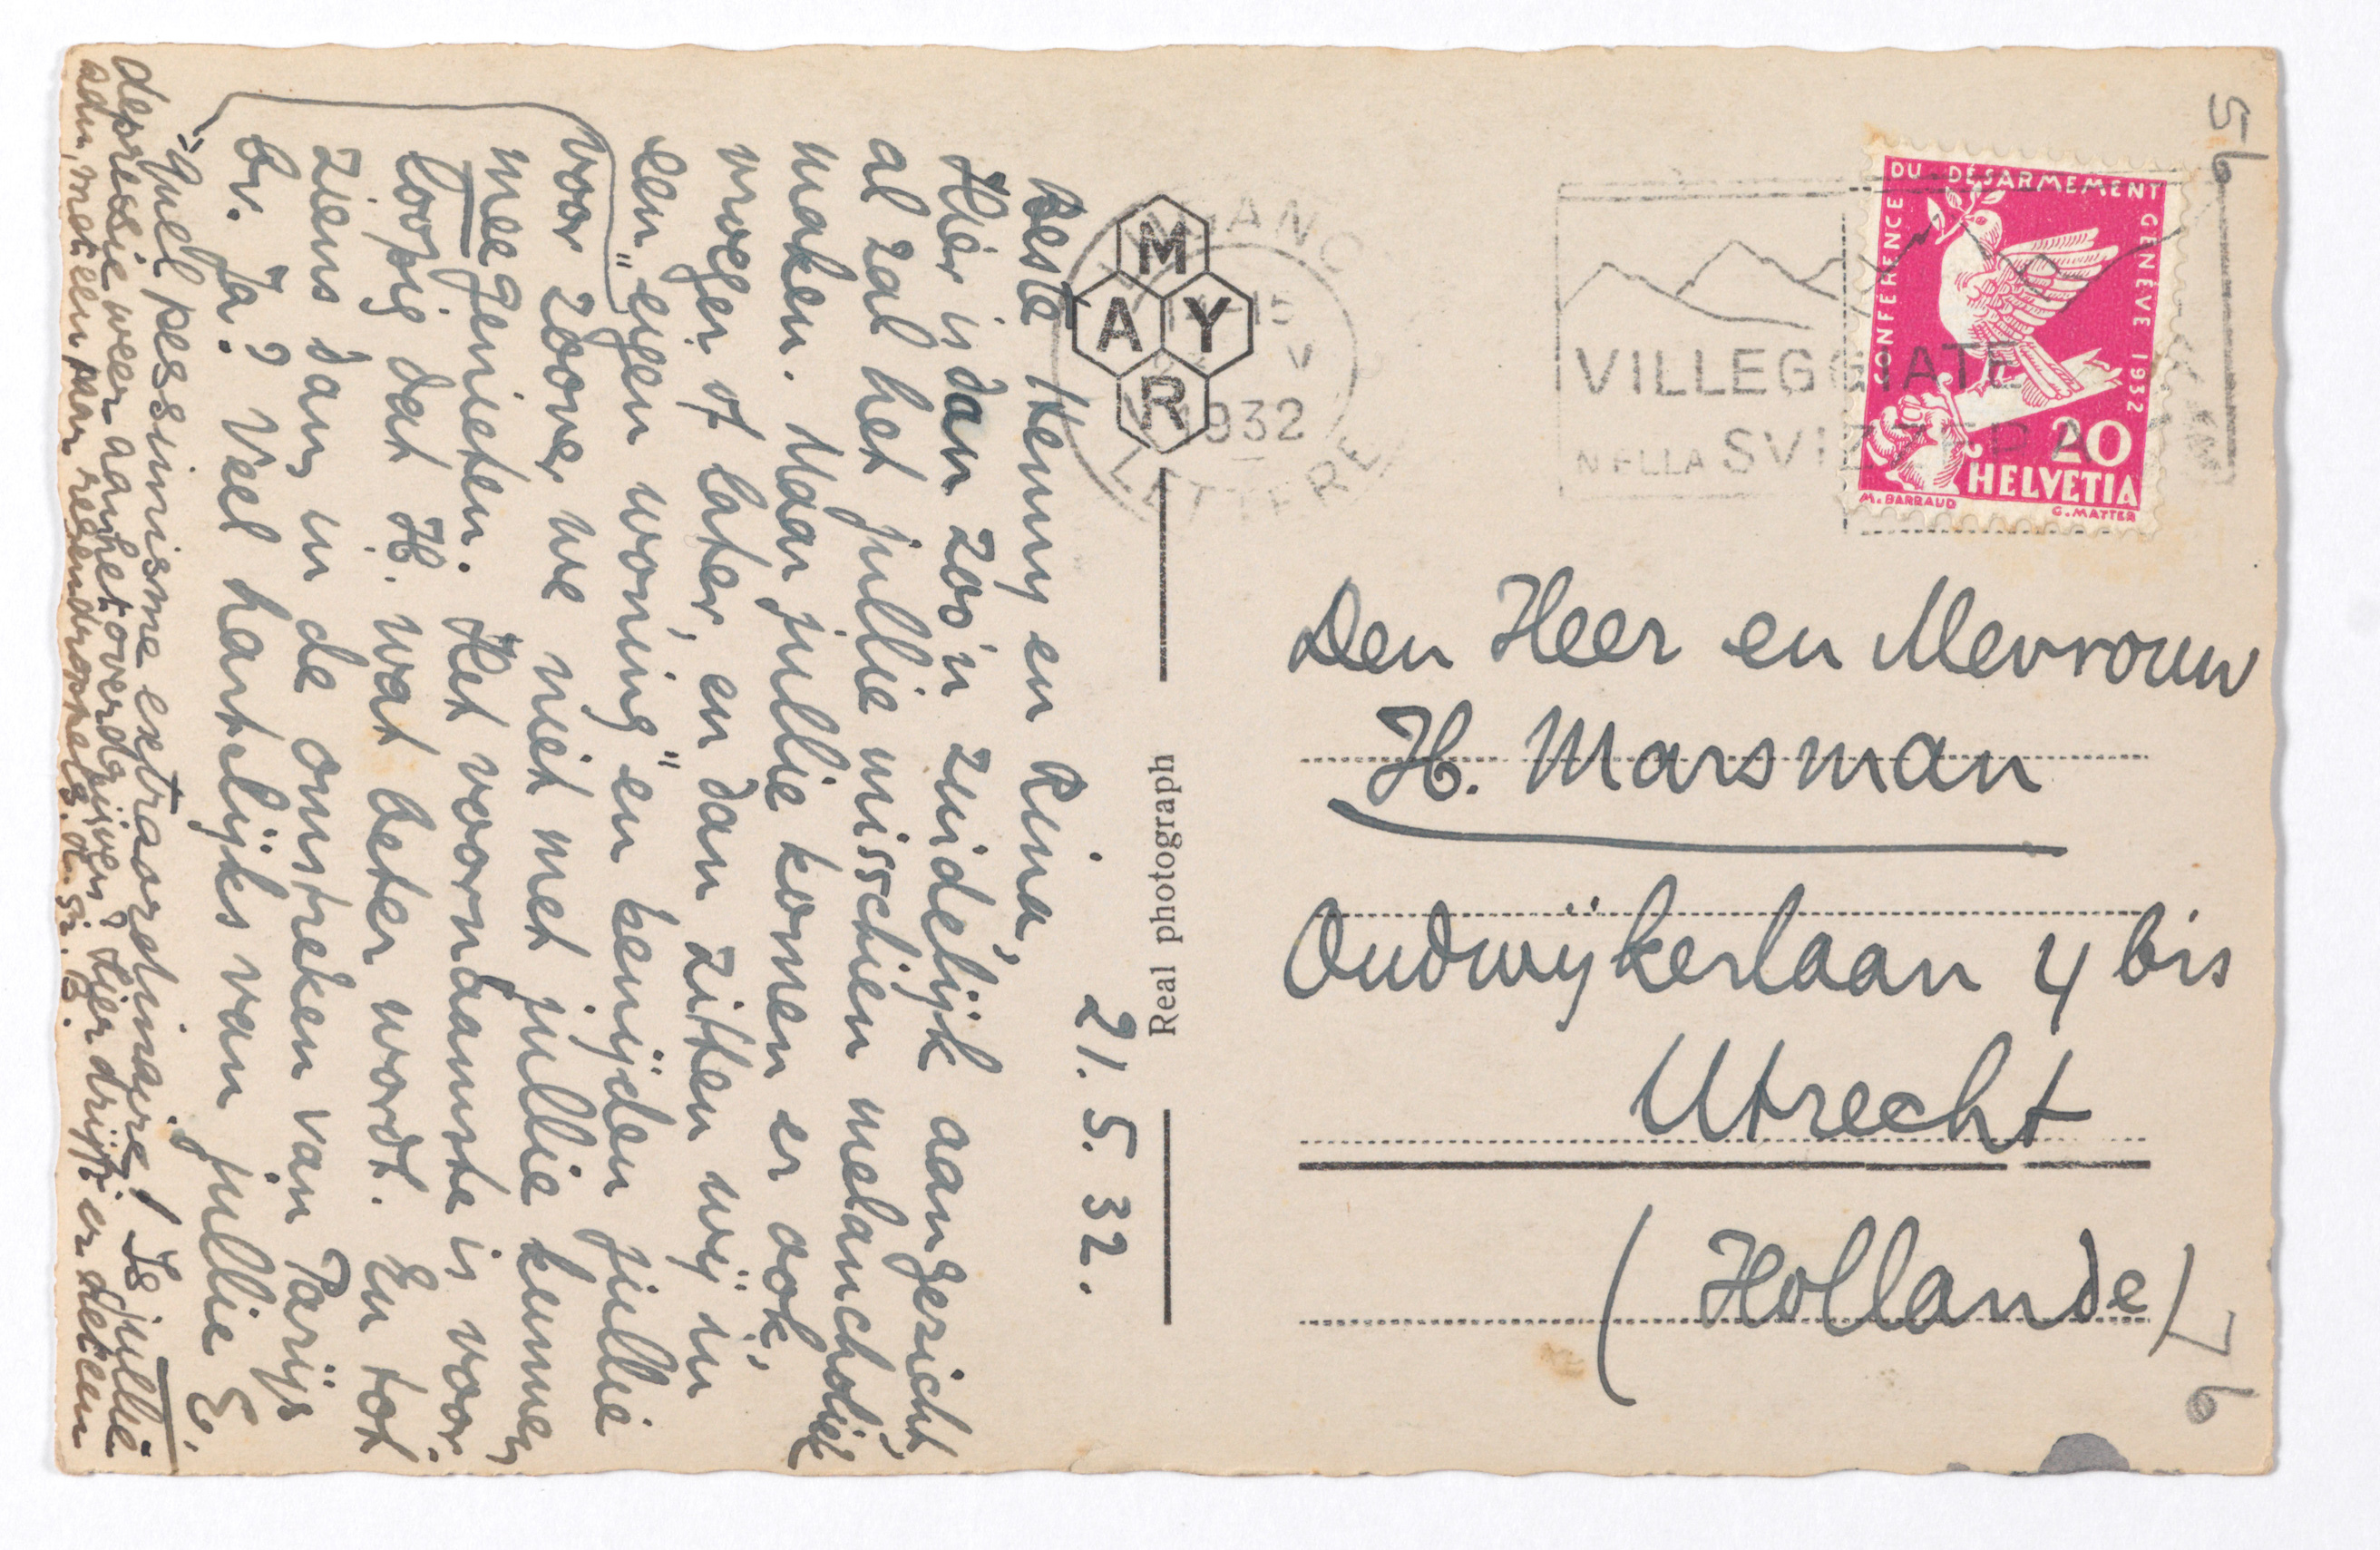 21. 5. 32.
Beste Henny en Rina,
Hier is dan zoo'n zuidelijk aangezicht,
al zal het jullie misschien melancholiek
maken. Maar jullie komen er ook,
vroeger of later, en dan zitten wij in
een "eigen woning" en benijden jullie
voor zoover we niet met jullie kunnen
meegenieten. Het voornaamste is voor-
loopig dat H. wat beter wordt. En tot
ziens dan, in de omstreken van Parijs
br. Ja? Veel hartelijks van jullie E.
"Quel pessimisme extraordinaire! Is jullie
depressie weer aan het overdrijven? Hier drijft er detteen
adm, met een paar regendroppels.
MAYR
Real photograph
LUGANO
15
V
1932
LETTERE
VILLEGGIATE
NELLA SVIZZERA
CONFÉRENCE DU DÉSARMEMENT GENÈVE 1932
20
HELVETIA
M. BARRAUD
G. MATTER
Den Heer en Mevrouw
H. Marsman
Oudwijkerlaan 4 bis
Utrecht
(Hollande)
56
76